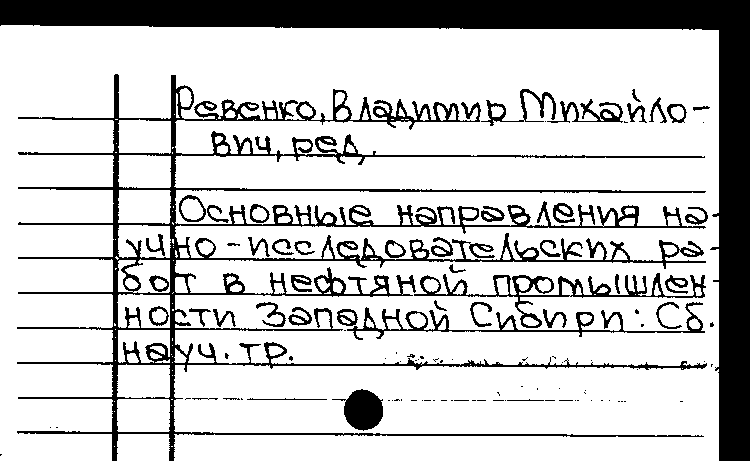 Ревенко, Владимир Михайло-
вич, ред.
Основные направления на-
учно-исследовательских ра-
бот в нефтяной промышлен-
ности Западной Сибири: Сб.
науч. тр.